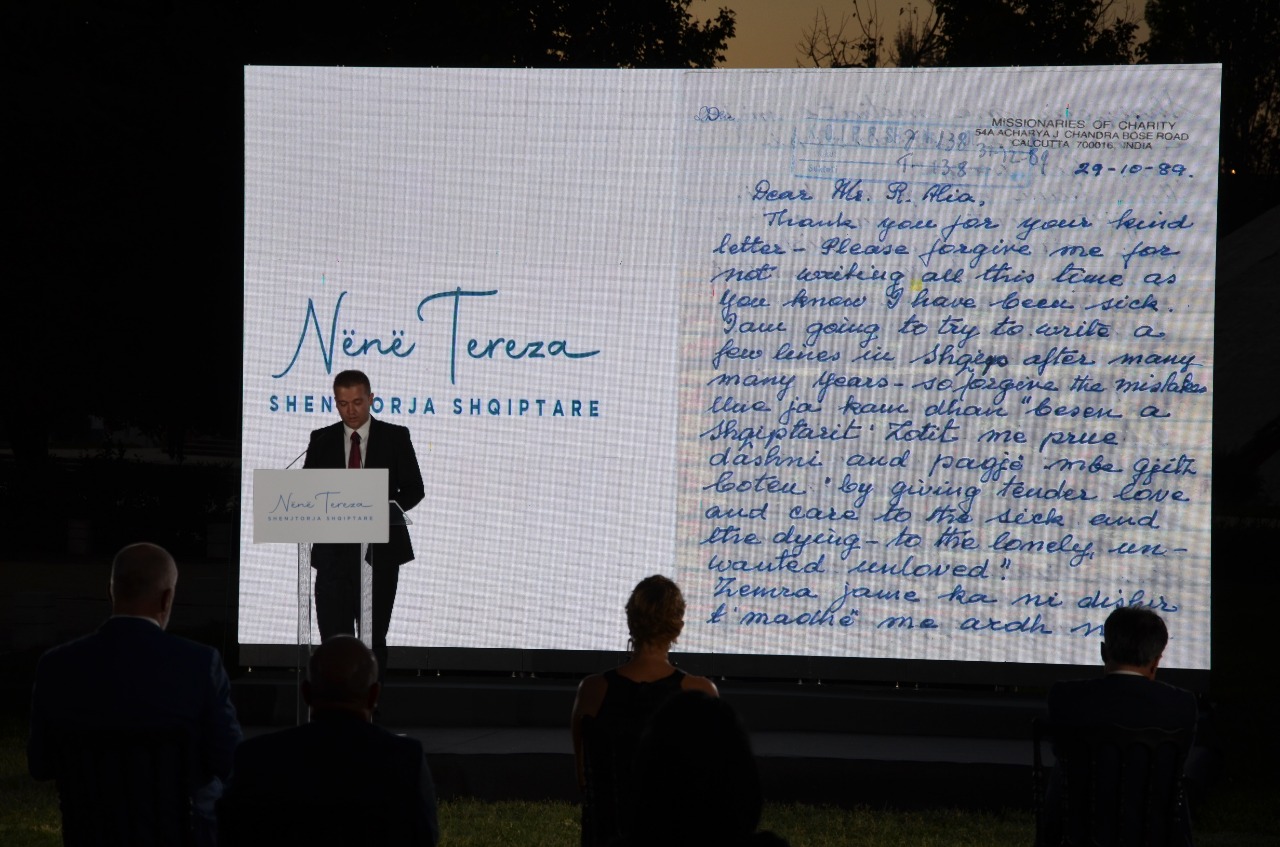 Nënë Tereza
SHENJTORJA SHQIPTARE
Nënë Tereza
SHENJTORJA SHQIPTARE
MISSIONARIES OF CHARITY
54A ACHARYA J. CHANDRA BOSE ROAD
CALCUTTA 700016, INDIA
29-10-89.
Dear Mr. R. Alia,
Thank you for your kind
letter – Please forgive me for
not writing all this time as
you know I have been sick.
I am going to try to write a
few lines in Shqip after many
many years – so forgive the mistakes
Une ja kam dhan "besen a
Shqiptarit" Zotit me prue
dashni and pagjë mbe gjith
boten "by giving tender love
and care to the sick and
the dying – to the lonely, un-
wanted unloved".
Zemra jame ka ni dishir
t'madhë me ardh